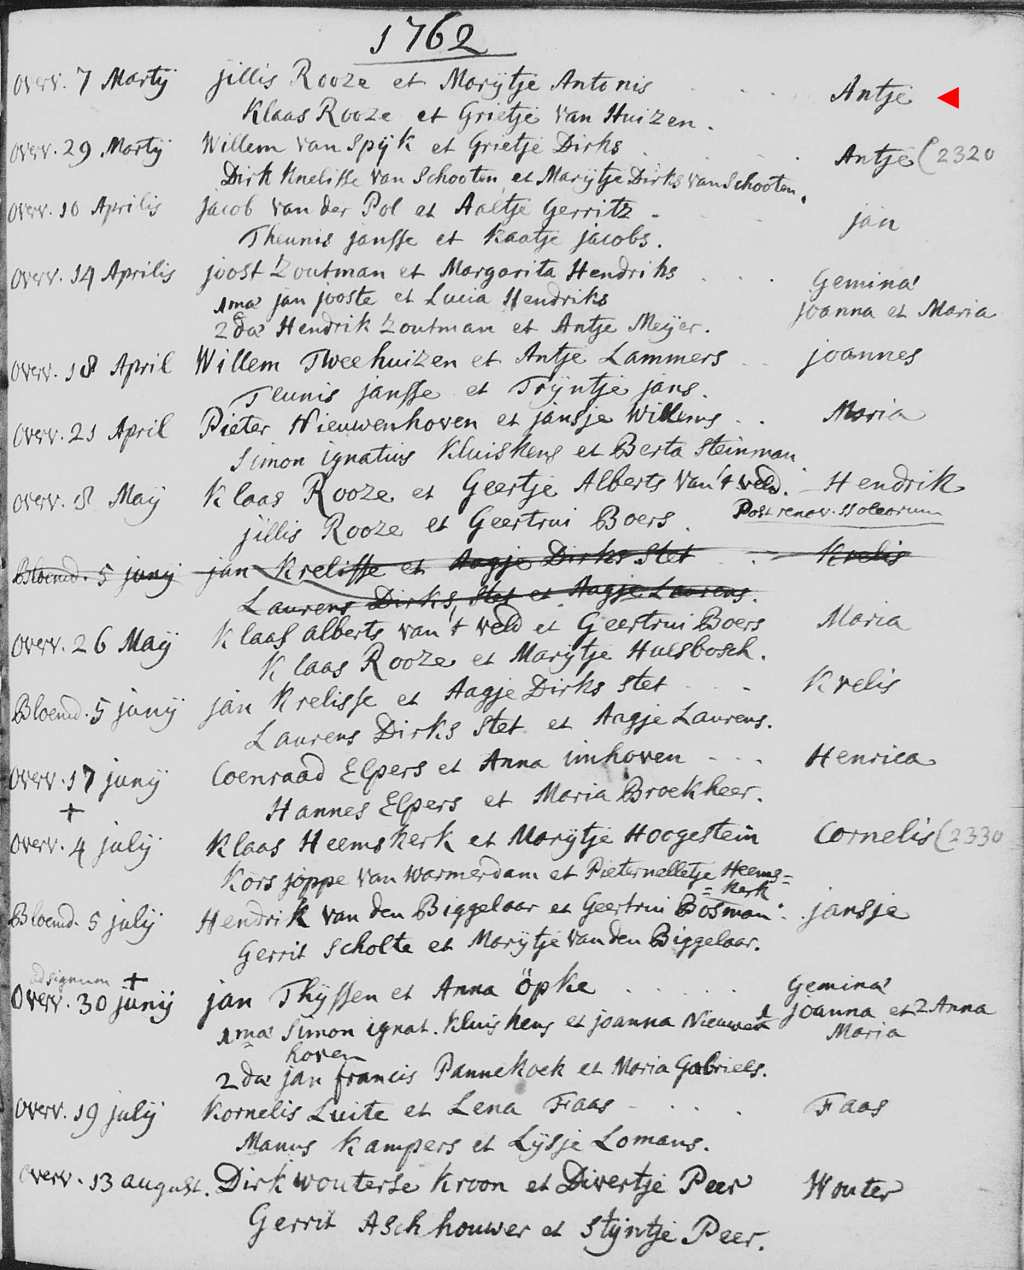 1762
Overv. 7 Martij jillis Rooze et Marijtje Antonis . . . . Antje
Klaas Rooze et Grietje van Huizen.
Overv. 29 Martij Willem van Spijk et Grietje Dirks . . . . Antje (2320
Dirk Knelisse van Schooten et Marijtje Dirks van Schooten.
Overv. 10 Aprilis jacob van der Pol et Aaltje Gerritz . . . jan
Theunis jansse et Kaatje jacobs.
Overv. 14 Aprilis joost Zoutman et Margarita Hendriks . . . . Gemina
1ma jan jooste et Lucia Hendriks joanna et Maria
2da Hendrik Zoutman et Antje Meijer.
Overv. 18 April Willem Tweehuizen et Antje Lammers . . joannes
Teunis jansse et Trijntje jans.
Overv. 21 April Pieter Nieuwenhoven et jansje Willems . . Maria
Simon ignatius Kluiskens et Berta Steinman.
Overv. 8 Maij Klaas Rooze et Geertje Alberts van 't veld. Hendrik
jillis Rooze et Geertrui Boers. Post renov. SS oleorum
Bloemd. 5 junij jan Krelisse et Aagje Dirks Stet . . Krelis
Laurens Dirks Stet et Aagje Laurens.
Overv. 26 Maij Klaas alberts van 't veld et Geertrui Boers Maria
Klaas Rooze et Marijtje Hulsbosch.
Bloemd. 5 junij jan Krelisse et Aagje Dirks Stet . . . . Krelis
Laurens Dirks Stet et Aagje Laurens.
Overv. 17 junij Coenraad Elpers et Anna imhoven . . . Henrica
+ Hannes Elpers et Maria Broekheer.
Overv. 4 julij Klaas Heemskerk et Marijtje Hoogestein Cornelis (2330
Kors joppe van Warmerdam et Pieternelletje Heems=
=kerk
Bloemd. 5 julij Hendrik van den Biggelaar et Geertrui Bosman . . jansje
Gerrit Scholte et Marijtje van den Biggelaar.
ad signum +
Overv. 30 junij jan Thijssen et Anna öpke . . . . . . Gemina
1ma Simon ignat. Kluiskens et joanna Nieuwen 1 joanna et 2 Anna
hoven Maria
2da jan francis Pannekoek et Maria Gabriels.
Overv. 19 julij Kornelis Luite et Lena Faas . . . . . Faas
Manus Kampers et Lijsje Lomans.
Overv. 13 august. Dirk wouterse Kroon et Divertje Peer Wouter
Gerrit Aschhouwer et Stijntje Peer.